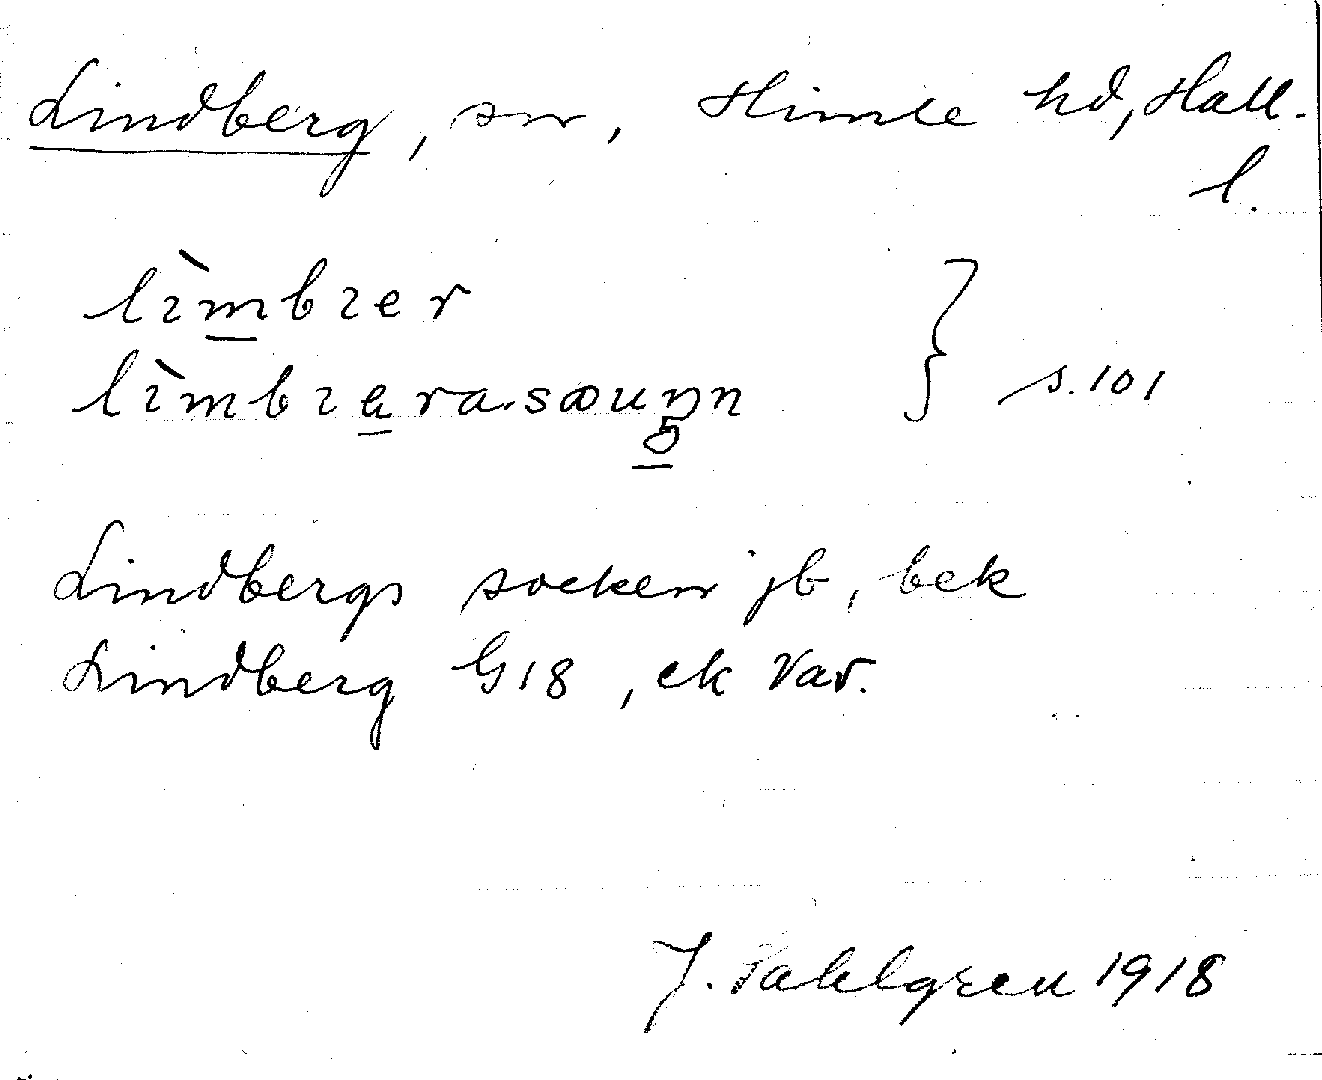 Lindberg, sn, Himle hd, Hall.
l.
lìmbɩer
lìmbɩera.sœuŋn } s. 101
Lindbergs socken jb, bek
Lindberg G18, ek Var.
J. Sahlgren 1918